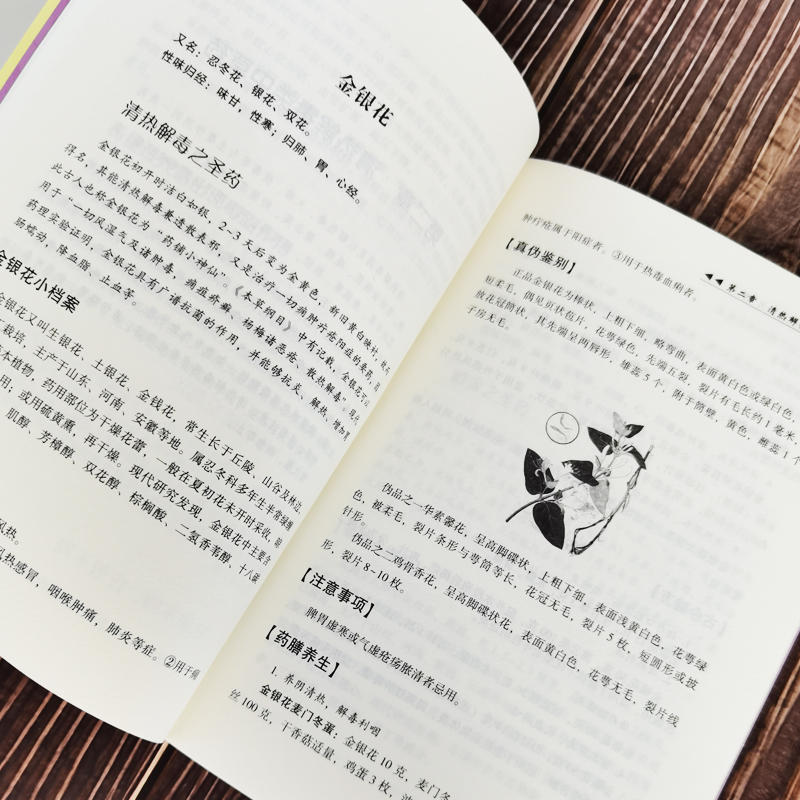 金银花
又名：忍冬花、银花、双花。
性味归经：味甘，性寒；归肺、胃、心经。
清热解毒之圣药
金银花初开时洁白如银，2~3天后变为金黄色，新旧黄白映衬，故
得名，其能清热解毒兼透散表邪，又是治疗一切病肿疔疮阳症的要药，
此古人也称金银花为“药铺小神仙”。《本草纲目》中有记载，金银花可
用于“一切风湿气及诸肿毒、痈疽疥癣、杨梅诸恶疮、散热解毒”。现代
药理实验证明，金银花具有广谱抗菌的作用，并能够抗炎、解热、增加胃
肠蠕动，降血脂、止血等。
金银花小档案
金银花又叫生银花、土银花、金钱花，常生长于丘陵、山谷及林边，
栽培，主产于山东、河南、安徽等地。属忍冬科多年生半常绿缠
本植物，药用部位为干燥花蕾，一般在夏初花未开时采收，晾
用，或用硫黄熏，再干燥。现代研究发现，金银花中主要含
肌醇、芳樟醇、双花醇、棕榈酸、二氢香苇醇、十八碳
风热。
风热感冒，咽喉肿痛，肺炎等症。②用于痈
◀◀ 第二章 清热解
肿疔疮属于阳症者。③用于热毒血痢者。
【真伪鉴别】
正品金银花为棒状，上粗下细，略弯曲，表面黄白色或绿白色，
短柔毛，偶见页状苞片，花萼绿色，先端五裂，裂片有毛长约1毫米，
放花冠筒状，其先端呈两唇形，雄蕊5个，附于筒壁，黄色，雌蕊1个
子房无毛。
伪品之一华素馨花，呈高脚碟状，上粗下细，表面浅黄白色，花萼绿
色，被柔毛，裂片条形与萼筒等长，花冠无毛，裂片5枚，短圆形或披
针形。
伪品之二鸡骨香花，呈高脚碟状花，表面黄白色，花萼无毛，裂片线
形，裂片8~10枚。
【注意事项】
脾胃虚寒或气虚疮疡脓清者忌用。
【药膳养生】
1. 养阴清热，解毒利咽
金银花麦门冬蛋：金银花10克，麦门冬
丝100克，干香菇适量，鸡蛋3枚，油